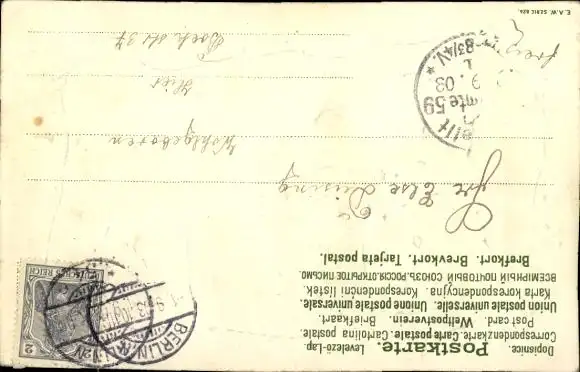 Dopisnice. Postkarte. Levelező-Lap.
Correspondenzkarte. Carte postale. Cartolina postale.
Post card. Weltpostverein. Briefkaart.
Union postale universelle. Unione postale universale.
Karta korespondencyjna. Korespondenčni listek.
ВСЕМІРНЫЙ ПОЧТОВЫЙ СОЮЗЪ. РОССІЯ. ОТКРЫТОЕ ПИСЬМО.
Brefkort. Brevkort. Tarjeta postal.
2
DEUTSCHES REICH
BERLIN
1.9.03
Else
Wohlgeboren
Hier
59
9.03
8¾N.
E.A.W. SERIE